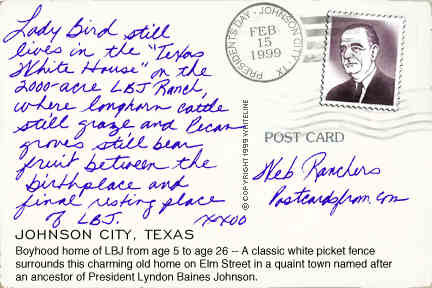 Lady Bird still
lives in the "Texas
White House" on the
2000-acre LBJ Ranch,
where longhorn cattle
still graze and Pecan
groves still bear
fruit between the
birthplace and
final resting place
of LBJ. xxoo
PRESIDENT'S DAY - JOHNSON CITY, TX
FEB
15
1999
© COPYRIGHT 1999 WHITELINE
POST CARD
Web Ranchers
Postcardsfrom.com
JOHNSON CITY, TEXAS
Boyhood home of LBJ from age 5 to age 26 -- A classic white picket fence
surrounds this charming old home on Elm Street in a quaint town named after
an ancestor of President Lyndon Baines Johnson.